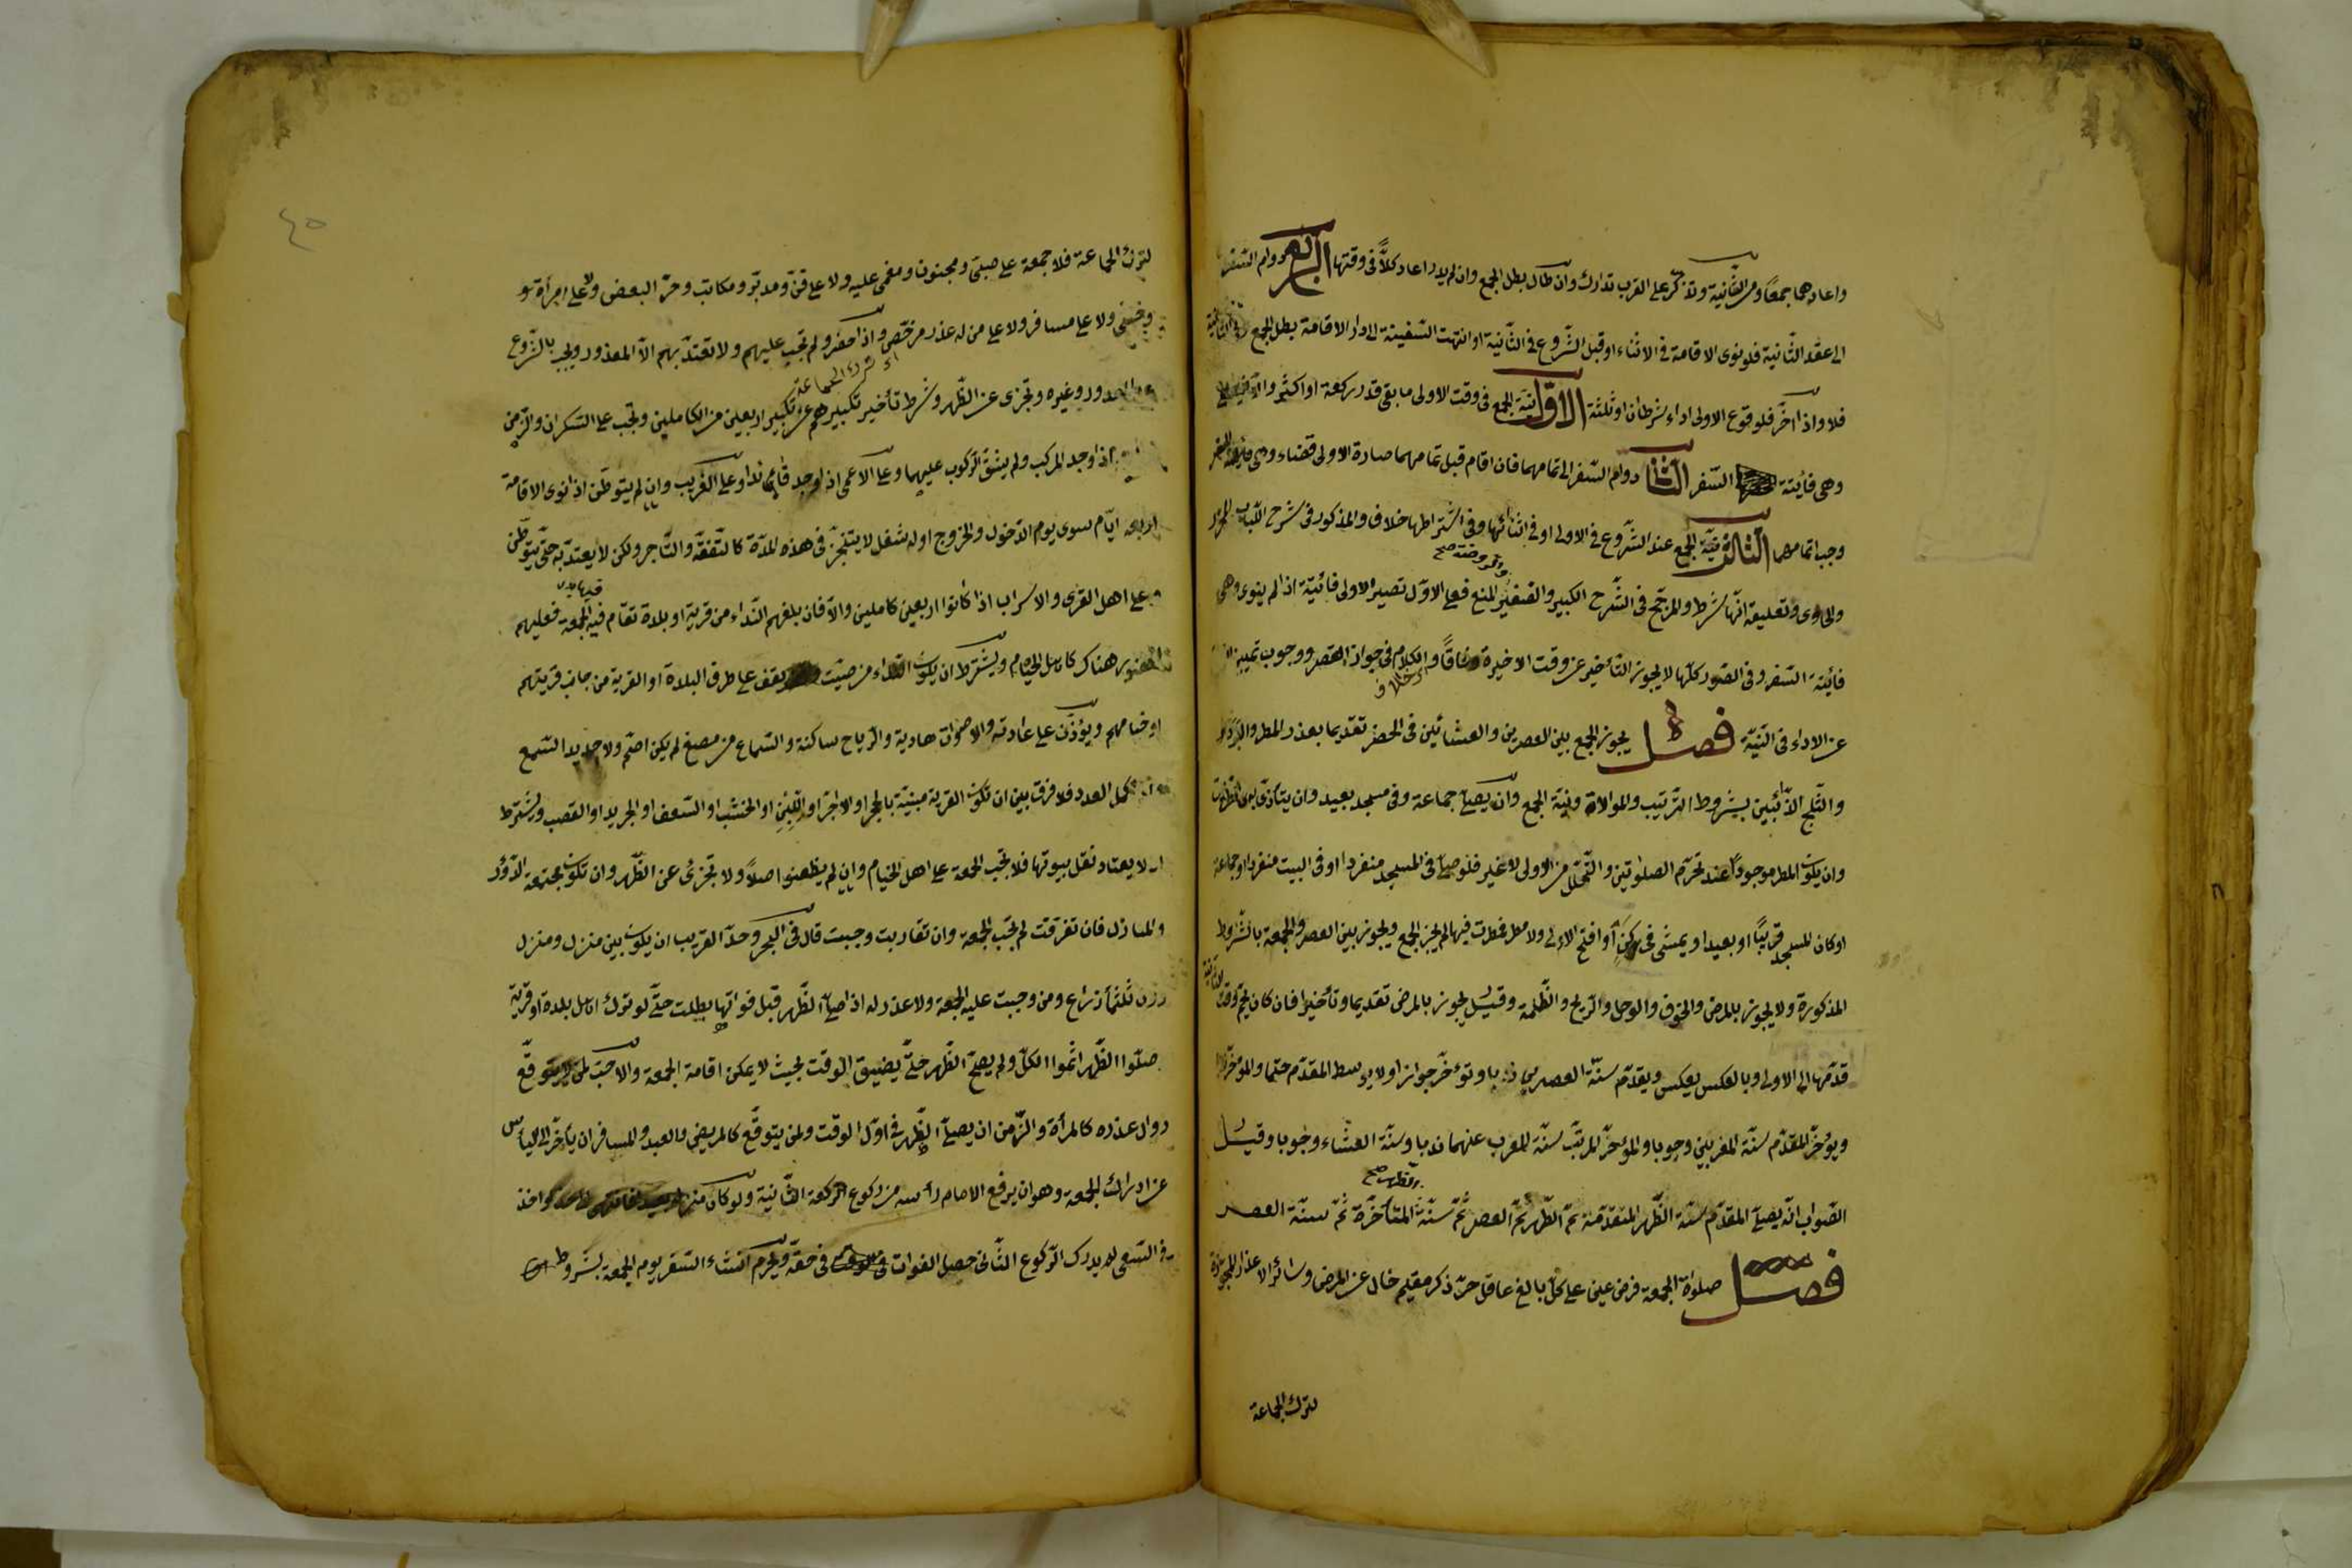 واعادهما جمعًا ومن الثانية وتذكر على القرب تدارك وان طال بطل الجمع وان لم يدر اعاد كلًّا فى وقتها الرابع دوام السفر
الى عقد الثانية فلو نوى الاقامة فى الاثناء او قبل الشروع فى الثانية او انتهت السفينة الى دار الاقامة بطل الجمع
فلا واذا اخر فلوقوع الاولى اداء شرطان او ثلثة الاول نية الجمع فى وقت الاولى ما بقى قدر ركعة او اكثر والا فيعصى
وهى فائتة السفر الثانى دوام السفر الى تمامهما فان اقام قبل تمامهما صارة الاولى قضاء وهى فائتة السفر
وجب اتمامهما الثالث نية الجمع عند الشروع فى الاولى او فى اثنائها وفى اشتراطها خلاف والمذكور فى شرح اللباب المحرر
والحاوى وتعليقه انها شرط والمرجح فى الشرح الكبير والصغير والروضة صح المنع فعلى الاول تصير الاولى فائتة اذا لم ينوى وهى
فائتة السفر وفى الصور كلها لا يجوز التأخير عن وقت الاخيرة وفاقًا والكلام فى جواز القصر ووجوب تمييز
عن الاداء فى النية فصل يجوز الجمع بين العصرين والعشائين فى الحضر تقديما بعذر المطر والبرد
والثلج الذائبين بشروط الترتيب والموالاة ونية الجمع وان يصلى جماعة وفى مسجد بعيد وان يتأذى
وان يكون المطر موجودًا عند تحرم الصلوتين والتحلل من الاولى لا غير فلو صلى فى المسجد منفردا او فى البيت منفردا او جماعة
او كان المسجد قريبًا او بعيدا ويمشى فى كن او افتتح الاولى ولا مطر فمطرت فيها لم يجز الجمع ويجوز بين العصر والجمعة بالشروط
المذكورة ولا يجوز بالمرض والخوف والوحل والريح والظلمة وقيل يجوز بالمرض تقديما وتأخيرا فان كان يحم وقت الثانية
قدمها الى الاولى وبالعكس يعكس ويقدم سنة العصرين ندبا وتؤخر جوازا ولا يوسط المقدم حتما والمؤخر
ويؤخر المقدم سنة المغربين وجوبا والمؤخر المرتب سنة المغرب عنهما ندبا وسنة العشاء وجوبا وقيل
الصواب انه يصلى المقدم سنة الظهر المتقدمة ثم الظهر ثم العصر ثم سنة الظهر صح المتأخرة ثم سنة العصر
فصل صلوة الجمعة فرض عين على كل بالغ عاقل حر ذكر مقيم خال عن المرض وسائر الاعذار المجوزة
لترك الجماعة
٤٥
لترك الجماعة فلا جمعة على صبى ومجنون ومغمى عليه ولا على قن ومدبر ومكاتب وحر البعض ولا على امرأة
وخنثى ولا على مسافر ولا على من له عذر مرخص واذا حضروا لم تجب عليهم ولا تنعقد بهم الا المعذور ويجب بالشروع
اى ترك الجماعة
وغيره وتجزى عن الظهر وشرط تأخير تكبيرهم عن تكبير اربعين من الكاملين وتجب على السكران والزمن
اذا وجد المركب ولم يشق الركوب عليهما وعلى الاعمى اذا وجد قائدا وعلى الغريب وان لم يتوطن اذا نوى الاقامة
اربعة ايام سوى يوم الدخول والخروج او له شغل لا يتنجز فى هذه المدة كالتفقه والتاجر ولكن لا يعتد به حتى يتوطن
وعلى اهل القرى والاسراب اذا كانوا اربعين كاملين والا فان بلغهم النداء من قرية او بلدة تقام فيه الجمعة فعليهم
الحضور هناك كاهل الخيام ويشترط ان يكون النداء من صيت يقف على طرف البلدة او القرية من جانب قريتهم
او خيامهم ويؤذن على عادته والاصوات هادية والرياح ساكنة والسماع من مصغ لم يكن اصم ولا حديد السمع
كمل العدد فلا فرق بين ان تكون القرية مبنية بالحجر او الاجر او اللبن او الخشب او السعف او الجريد او القصب ويشترط
ان لا يعتاد نقل بيوتها فلا تجب الجمعة على اهل الخيام وان لم يظعنوا اصلًا ولا تجزئ عن الظهر وان تكون مجتمعة الدور
والمنازل فان تفرقت لم تجب الجمعة وان تقاربت وجبت قال فى البحر وحد القريب ان يكون بين منزل ومنزل
دون ثلثمأة ذراع ومن وجبت عليه الجمعة ولا عذر له اذا صلى الظهر قبل فواتها بطلت حتى لو ترك اهل بلدة او قرية
صلوا الظهر اثموا الكل ولم يصح الظهر حتى يضيق الوقت بحيث لا يمكن اقامة الجمعة والاحب لمن لا يتوقع
زوال عذره كالمرأة والزمن ان يصلى الظهر فى اول الوقت ولمن يتوقع كالمريض والعبد والمسافر ان يأخر الى اليأس
عن ادراك الجمعة وهو ان يرفع الامام رأسه من ركوع الركعة الثانية ولو كان منزله واخذ
فى السعى لم يدرك الركوع الثانى حصل الفوات فى حقه ويحرم انشاء السفر يوم الجمعة بشروط